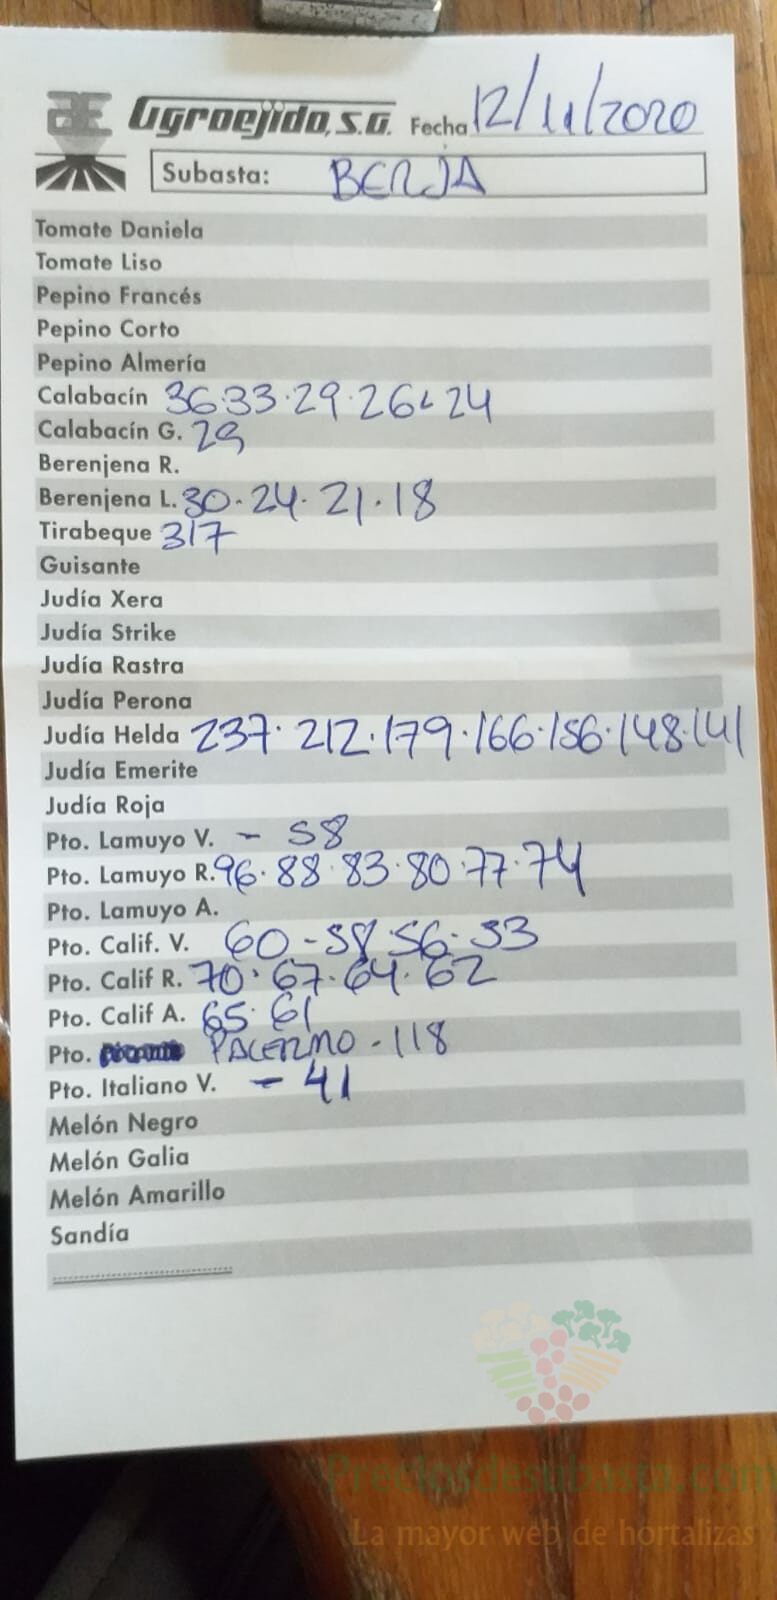 Agroejido, S.A. Fecha 12/11/2020
Subasta: BERJA
Tomate Daniela
Tomate Liso
Pepino Francés
Pepino Corto
Pepino Almería
Calabacín 36·33·29·26·24
Calabacín G. 29
Berenjena R.
Berenjena L. 30·24·21·18
Tirabeque 317
Guisante
Judía Xera
Judía Strike
Judía Rastra
Judía Perona
Judía Helda 237·212·179·166·156·148·141
Judía Emerite
Judía Roja
Pto. Lamuyo V. - 58
Pto. Lamuyo R. 96·88·83·80·77·74
Pto. Lamuyo A.
Pto. Calif. V. 60-58·56·53
Pto. Calif R. 70·67·64·62
Pto. Calif A. 65·61
Pto. PALERMO-118
Pto. Italiano V. - 41
Melón Negro
Melón Galia
Melón Amarillo
Sandía
Preciosdesubasta.com
La mayor web de hortalizas